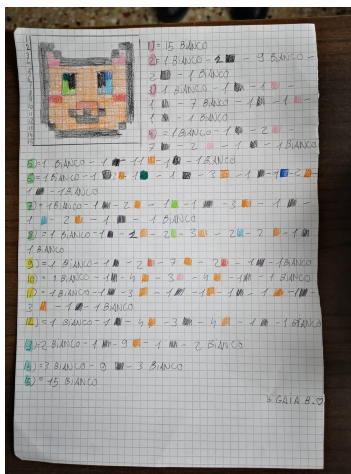 1)= 15 BIANCO
2)= 1 BIANCO - 2 - 9 BIANCO -
2 - 1 BIANCO
3) 1 BIANCO - 1 - 1 -
1 - 7 BIANCO - 1 - 1 -
1 - 1 BIANCO
4) = 1 BIANCO - 1 - 2 -
7 - 2 - 1 - 1 BIANCO
5)= 1 BIANCO - 1 - 11 - 1 - 1 BIANCO
6)= 1 BIANCO - 1 - 1 - 1 - 3 - 1 - 1 - 2 -
1 - 1 BIANCO
7)= 1 BIANCO - 1 - 2 - 1 - 1 - 3 - 1 -
1 - 2 - 1 - 1 BIANCO
8)= 1 BIANCO - 1 - 2 - 2 - 3 - 2 - 2 - 1 -
1 BIANCO
9)= 1 BIANCO - 1 - 2 - 7 - 2 - 1 - 1 BIANCO
10) = 1 BIANCO - 1 - 4 - 3 - 4 - 1 - 1 BIANCO
11)= 1 BIANCO - 1 - 3 - 1 - 1 - 1 - 1 -
3 - 1 - 1 BIANCO
12)= 1 BIANCO - 1 - 4 - 3 - 4 - 1 - 1 BIANCO
13)= 2 BIANCO - 1 - 9 - 1 - 2 BIANCO
14)= 3 BIANCO - 9 - 3 BIANCO
15)= 15 BIANCO
GAIA B.♡